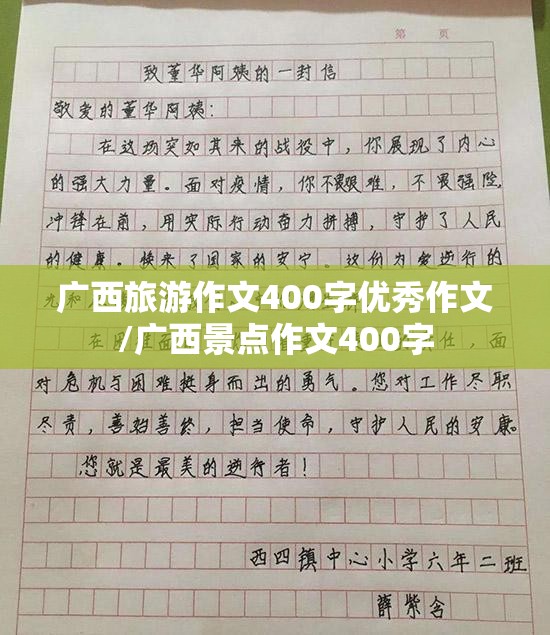 第 页
致董华阿姨的一封信
敬爱的董华阿姨：
在这场突如其来的战役中，你展现了内心
的强大力量。面对疫情，你不畏艰难，不畏强险，
冲锋在前，用实际行动奋力拼搏，守护了人民
的健康。换来了国家的安宁。这份为爱逆行的
广西旅游作文400字优秀作文
/广西景点作文400字
对危机与困难挺身而出的勇气。您对工作尽职
尽责，善始善终，担当使命，守护人民的安康。
您就是最美的逆行者！
西四镇中心小学六年二班
薛紫含